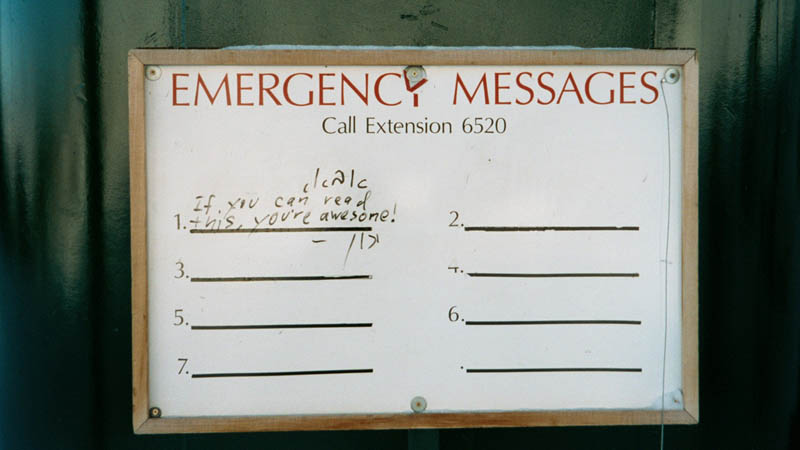 EMERGENCY MESSAGES
Call Extension 6520
If you can read
1. this, you're awesome!
2.
3.
5.
6.
7.